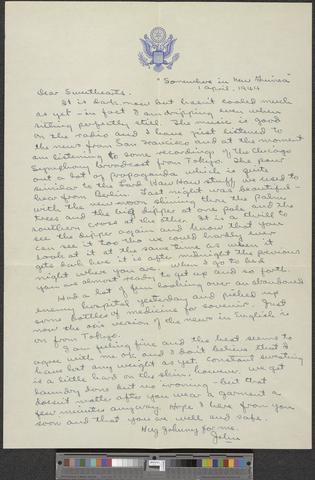 "Somewhere in New Guinea"
1 April, 1944
Dear Sweethearts.
It is dark now but hasn't cooled much
as yet - in fact I am dripping even when
sitting perfectly still. The music is good
on the radio and I have just listened to
the news from San Francisco and at the moment
am listening to some recordings of the Chicago
Symphony broadcast from Tokyo. They pour
out a lot of propaganda which is quite
similar to the Lord Haw Haw stuff we used to
hear from Berlin. Last night was beautiful -
with the new moon shining thru the palm
trees and the big dipper at one pole and the
southern cross at the other. It is a thrill to
see the dipper again and know that you
can see it too tho we could hardly ever
look at it at the same time as when it
gets dark here it is after midnight the previous
night where you are, when I go to bed
you are almost ready to get up and so forth.
Had a lot of fun looking over an abandoned
enemy hospital yesterday and picked up
some bottles of medicine for souvenir. Just
now the axis version of the news in English is
on from Tokyo.
I am feeling fine and the heat seems to
agree with me ok and I don't believe that I
have lost any weight as yet. Constant sweating
is a little hard on the skin, however. We get
laundry done but no ironing - but that
doesnt matter after you wear a garment a
few minutes anyway. Hope I hear from you
soon and that you are well and safe.
Hug Johnny for me.
John